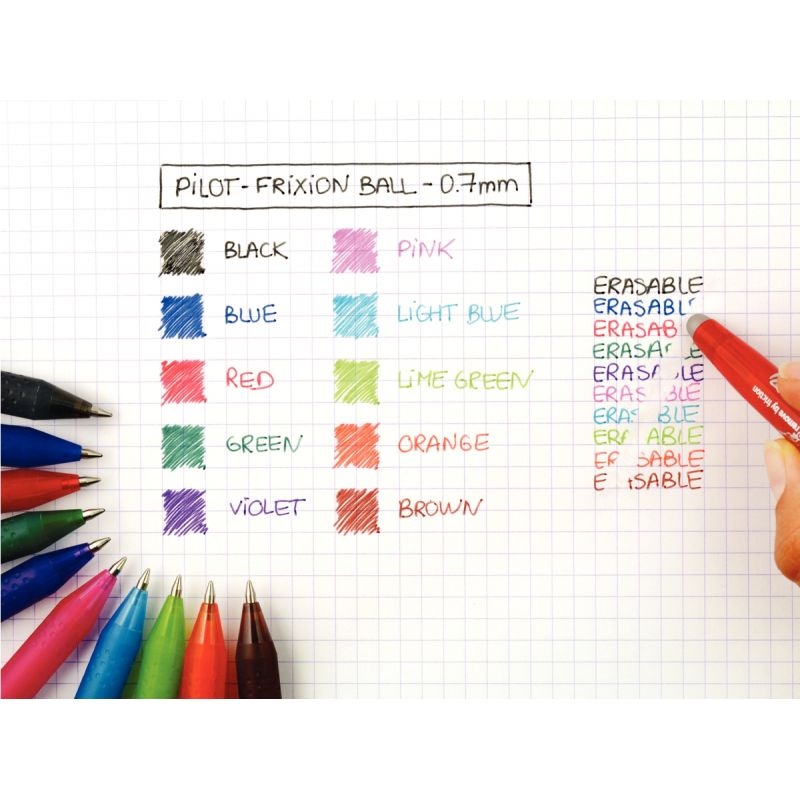 PILOT-FRIXION BALL - 0.7mm
BLACK
BLUE
RED
GREEN
VIOLET
PINK
LIGHT BLUE
LIME GREEN
ORANGE
BROWN
ERASABLE
ERASABL
ERASAB
ERASA E
ERAS LE
ERAS BLE
ERAS BLE
ER ABLE
ER SABLE
E SABLE
remove by friction